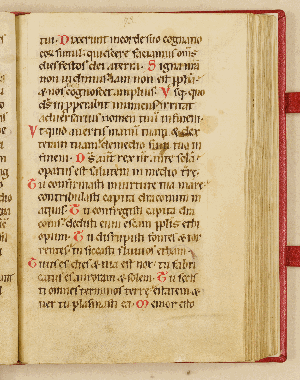 tui. Dixerunt in corde suo cognatio
eoꝝ simul. quiescere faciamus om̄s
dies festos dei a terra. Signa nr̄a
non uidimus iam non est ꝓpha.
⁊ nos nō cognoscet amplius. Vsq̨quo
ds̄ improperabit inimicus irritat
aduersarius nomen tuū in finem.
Vt quid auertis manū tuam ⁊ dex
teram tuam de medio sinu tuo in
finem. Ds̄ aūt rex nr̄ ante scla.
opatus est salutem in medio tr̄e.
Tu confirmasti in uirtute tua mare.
contribulasti capita draconum in
aquis. Tu confregisti capita dra
conis. dedisti eum escam pplis ethi
opum. Tu disrupisti fontes ⁊ tor
rentes. tu siccasti fluuios etham.
Tuus est dies ⁊ tua est nox. tu fabri
catus es auroram ⁊ solem. Tu fecis
ti omnes terminos terre. estatem ⁊
uer tu plasmasti ea. Memor esto